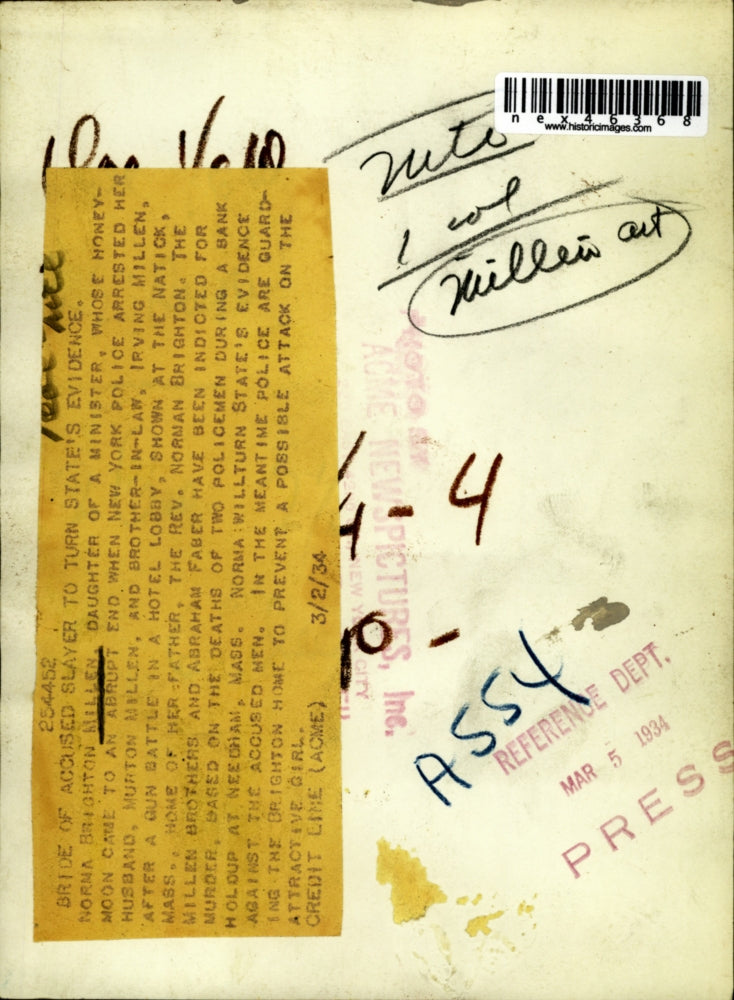 nex46368
www.historicimages.com
1 col
Millen art
254452
BRIDE OF ACCUSED SLAYER TO TURN STATE'S EVIDENCE.
NORMA BRIGHTON MILLEN, DAUGHTER OF A MINISTER, WHOSE HONEY-
MOON CAME TO AN ABRUPT END WHEN NEW YORK POLICE ARRESTED HER
HUSBAND, MURTON MILLEN, AND BROTHER-IN-LAW, IRVING MILLEN,
AFTER A GUN BATTLE IN A HOTEL LOBBY, SHOWN AT THE NATICK,
MASS., HOME OF HER FATHER, THE REV. NORMAN BRIGHTON. THE
MILLEN BROTHERS AND ABRAHAM FABER HAVE BEEN INDICTED FOR
MURDER, BASED ON THE DEATHS OF TWO POLICEMEN DURING A BANK
HOLDUP AT NEEDHAM, MASS. NORMA WILLTURN STATE'S EVIDENCE
AGAINST THE ACCUSED MEN. IN THE MEANTIME POLICE ARE GUARD-
ING THE BRIGHTON HOME TO PREVENT A POSSIBLE ATTACK ON THE
ATTRACTIVE GIRL.
CREDIT LINE (ACME) 3/2/34
PHOTO BY
ACME NEWSPICTURES, Inc.
NEW YORK CITY
4-4
10-
A554
REFERENCE DEPT.
MAR 5 1934
PRESS